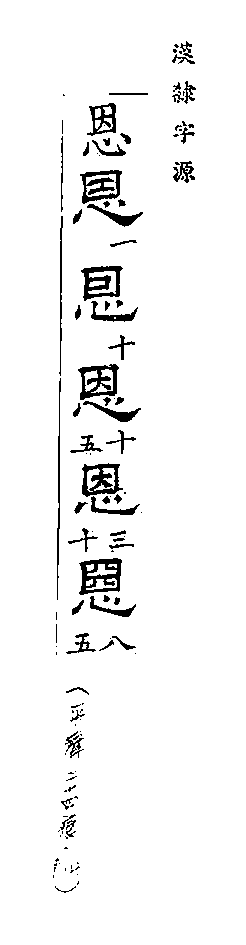 漢隸字源
恩恩一恩十恩十五恩三十恩八五
(平聲二十四痕